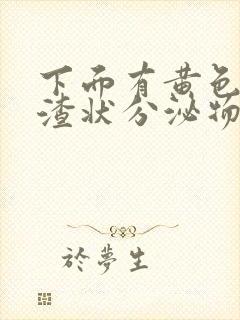 下面有黄色
渣状分泌物
於夢生